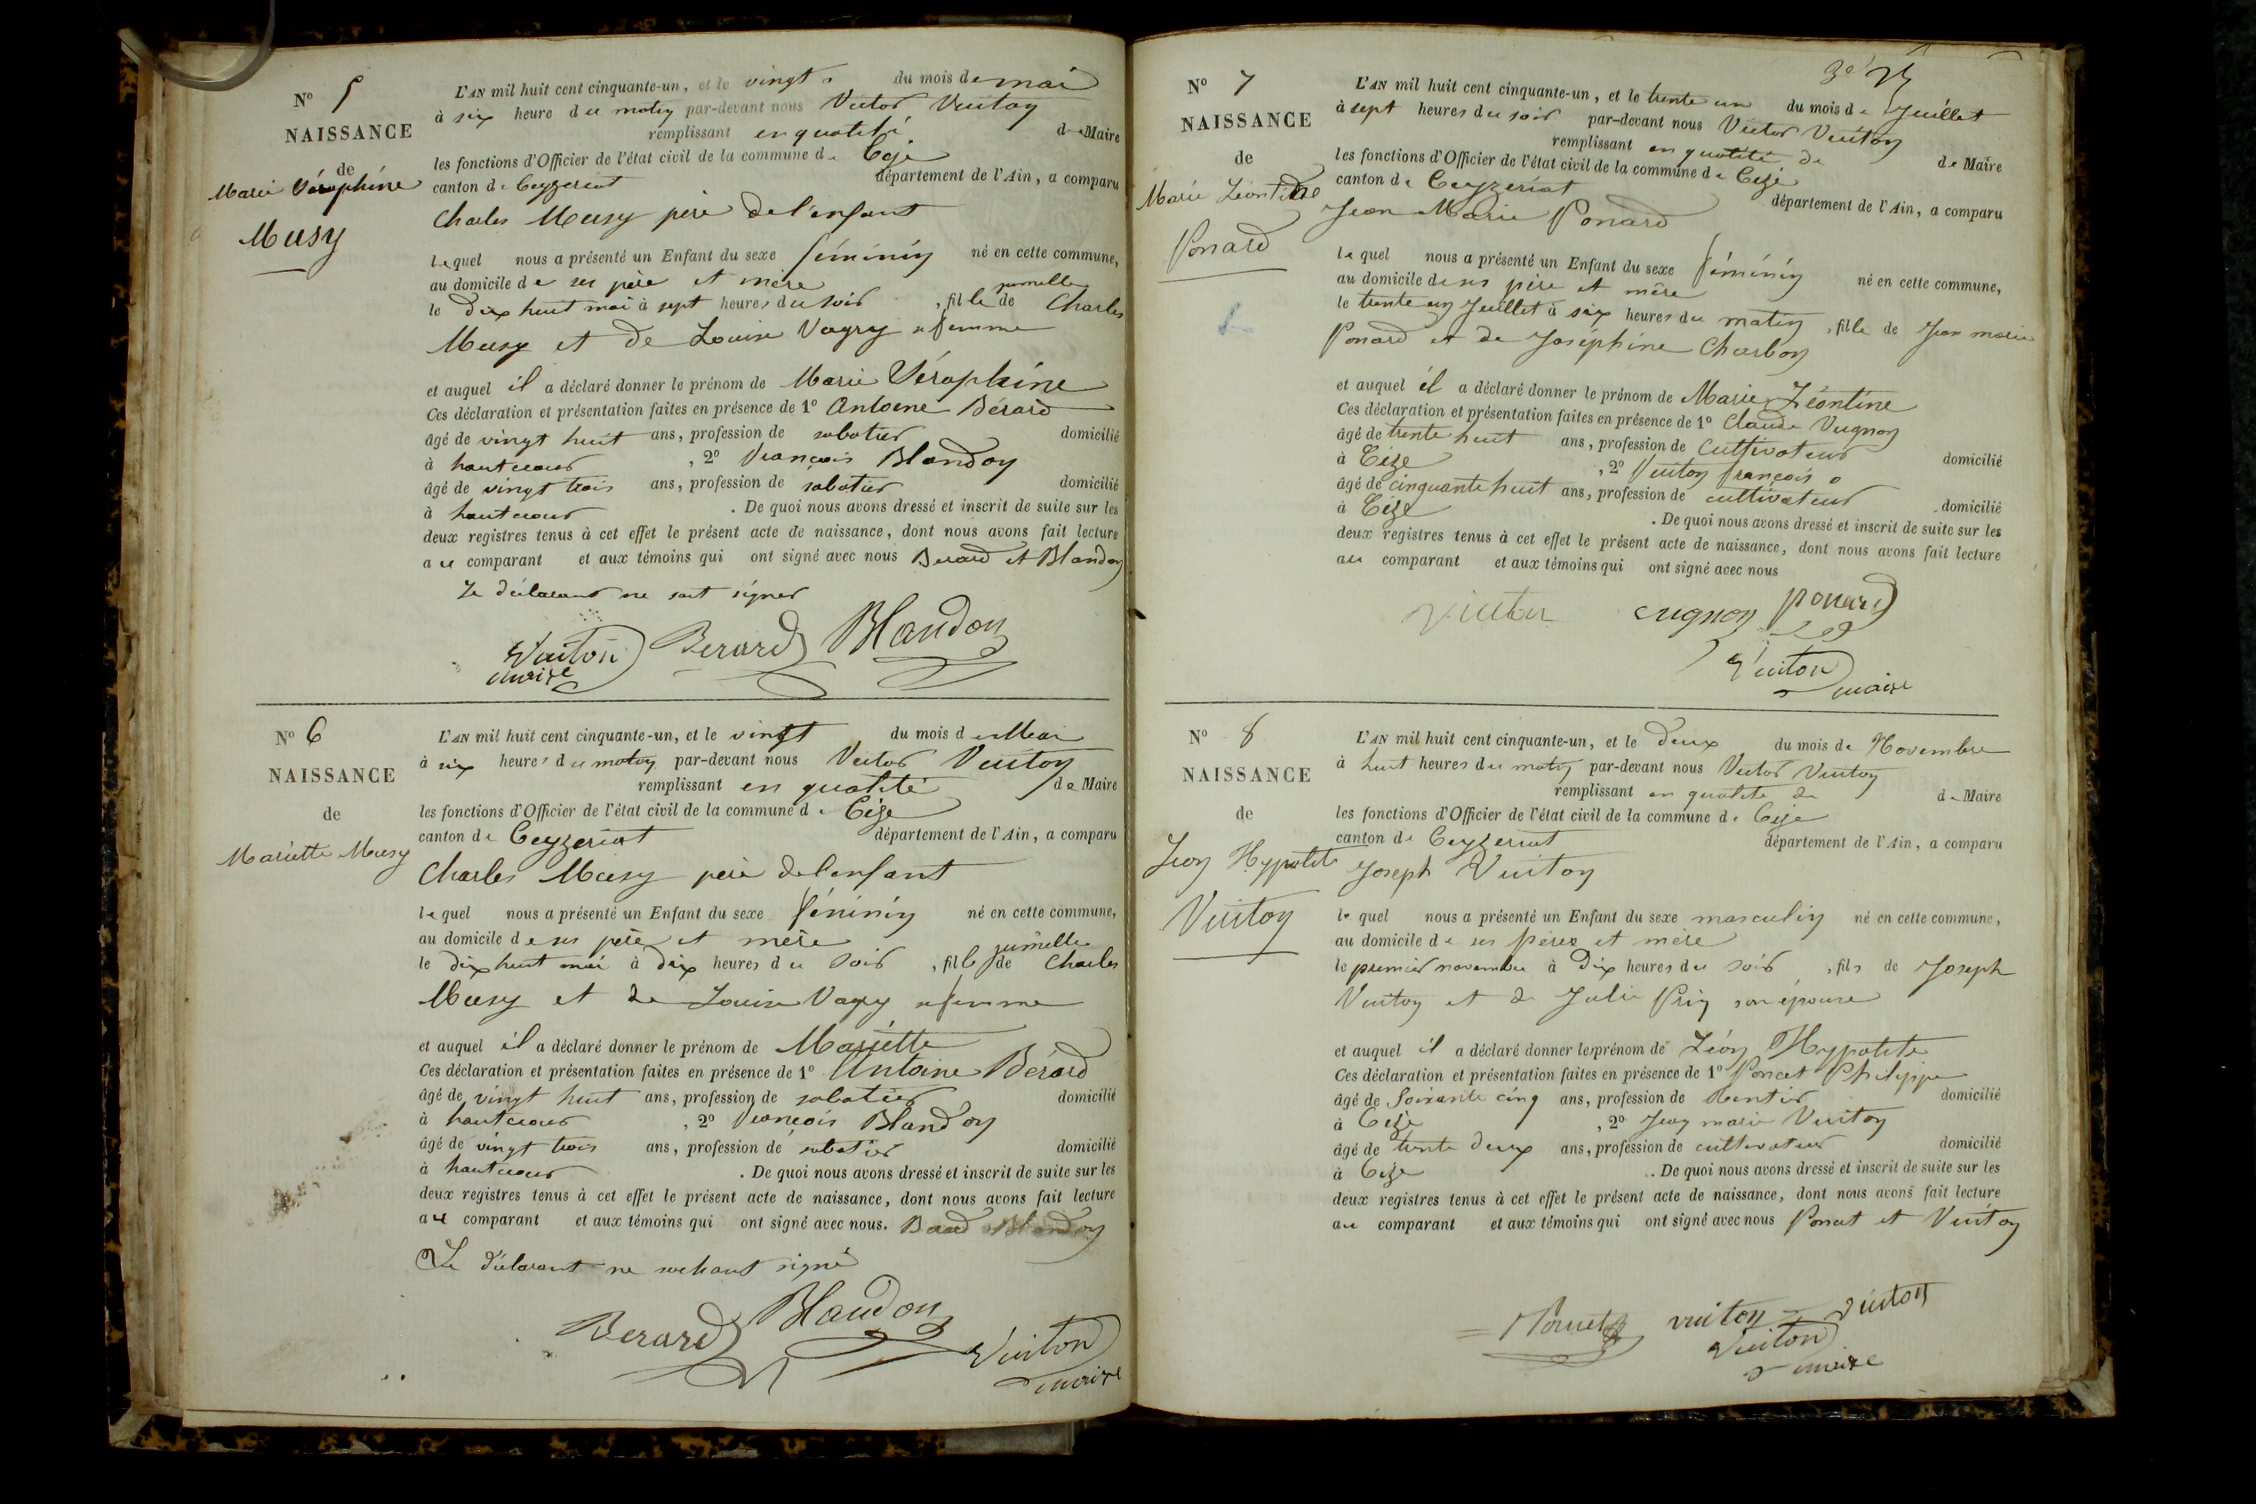 N° 5
NAISSANCE
de
Marie Séraphine
Musy
L'AN mil huit cent cinquante-un, et le vingt du mois de mai
à six heure du matin par-devant nous Victor Vuiton
remplissant en qualité de Maire
les fonctions d'Officier de l'état civil de la commune de Cize
canton de Ceyzeriat département de l'Ain, a comparu
Charles Musy père de l'enfant
lequel nous a présenté un Enfant du sexe féminin né en cette commune,
au domicile de ses père et mère
jumelle
le dix huit mai à sept heures du soir, fille de Charles
Musy et de Louise Vagry sa femme
et auquel il a déclaré donner le prénom de Marie Séraphine
Ces déclaration et présentation faites en présence de 1° Antoine Bérard
âgé de vingt huit ans, profession de sabotier domicilié
à hautecour, 2° François Blandon
âgé de vingt trois ans, profession de sabotier domicilié
à hautecour. De quoi nous avons dressé et inscrit de suite sur les
deux registres tenus à cet effet le présent acte de naissance, dont nous avons fait lecture
au comparant et aux témoins qui ont signé avec nous Berard et Blandon
Le déclarant ne sait signer
Vuiton Berard Blandon
maire
N° 6
NAISSANCE
de
Mariette Musy
L'AN mil huit cent cinquante-un, et le vingt du mois de Mai
à six heures du matin par-devant nous Victor Vuiton
remplissant en qualité de Maire
les fonctions d'Officier de l'état civil de la commune de Cize
canton de Ceyzeriat département de l'Ain, a comparu
Charles Musy père de l'enfant
lequel nous a présenté un Enfant du sexe féminin né en cette commune,
au domicile de ses père et mère
jumelle
le dix huit mai à dix heures du soir, fille de Charles
Musy et de Louise Vagry sa femme
et auquel il a déclaré donner le prénom de Mariette
Ces déclaration et présentation faites en présence de 1° Antoine Bérard
âgé de vingt huit ans, profession de sabotier domicilié
à hautecour, 2° François Blandon
âgé de vingt trois ans, profession de sabotier domicilié
à hautecour. De quoi nous avons dressé et inscrit de suite sur les
deux registres tenus à cet effet le présent acte de naissance, dont nous avons fait lecture
au comparant et aux témoins qui ont signé avec nous. Blandon
Le déclarant ne sachant signé
Berard Blandon Vuiton
maire
N° 7
NAISSANCE
de
Marie Léontine
Ponard
L'AN mil huit cent cinquante-un, et le trente un du mois de Juillet
à sept heures du soir par-devant nous Victor Vuiton
remplissant en qualité de de Maire
les fonctions d'Officier de l'état civil de la commune de Cize
canton de Ceyzeriat département de l'Ain, a comparu
Jean Marie Ponard
lequel nous a présenté un Enfant du sexe féminin né en cette commune,
au domicile de ses père et mère
le trente un Juillet à six heures du matin, fille de Jean marie
Ponard et de Joséphine Charbon
et auquel il a déclaré donner le prénom de Marie Léontine
Ces déclaration et présentation faites en présence de 1° Claude Cugnon
âgé de trente huit ans, profession de cultivateur domicilié
à Cize, 2° Vuiton françois
âgé de cinquante huit ans, profession de cultivateur domicilié
à Cize. De quoi nous avons dressé et inscrit de suite sur les
deux registres tenus à cet effet le présent acte de naissance, dont nous avons fait lecture
au comparant et aux témoins qui ont signé avec nous
cugnon ponard
Vuiton
maire
N° 8
NAISSANCE
de
Léon Hypolite
Vuiton
L'AN mil huit cent cinquante-un, et le deux du mois de Novembre
à huit heures du matin par-devant nous Victor Vuiton
remplissant en qualité de de Maire
les fonctions d'Officier de l'état civil de la commune de Cize
canton de Ceyzeriat département de l'Ain, a comparu
Joseph Vuiton
lequel nous a présenté un Enfant du sexe masculin né en cette commune,
au domicile de ses pères et mère
le premier novembre à dix heures du soir, fils de Joseph
Vuiton et de Julie Prin son épouse
et auquel il a déclaré donner le prénom de Léon Hypolite
Ces déclaration et présentation faites en présence de 1° Poncet Philippe
âgé de Soixante cinq ans, profession de Rentier domicilié
à Cize, 2° Jean marie Vuiton
âgé de trente deux ans, profession de cultivateur domicilié
à Cize. De quoi nous avons dressé et inscrit de suite sur les
deux registres tenus à cet effet le présent acte de naissance, dont nous avons fait lecture
au comparant et aux témoins qui ont signé avec nous Poncet et Vuiton
Poncet vuiton vuiton
Vuiton
maire